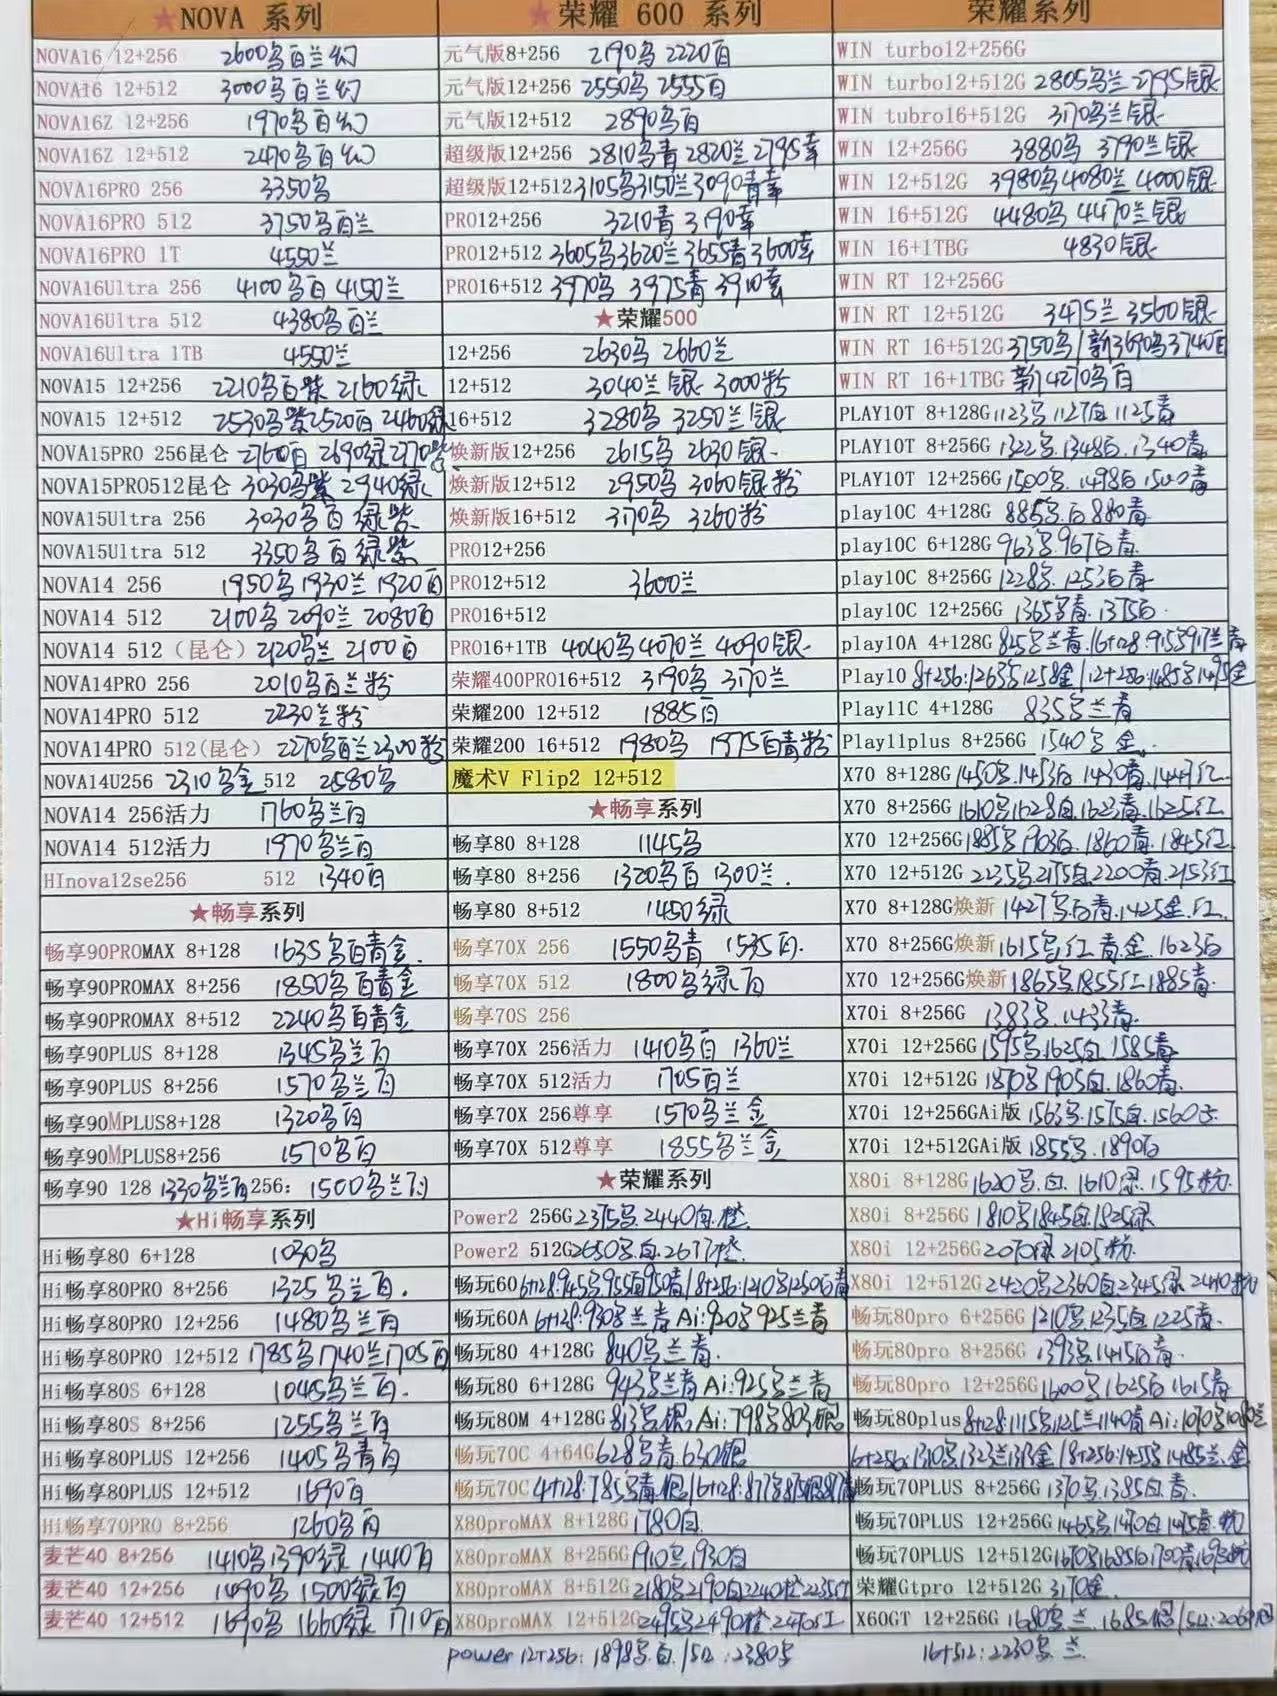 ★NOVA 系列
NOVA16 12+256 2600乌百兰幻
NOVA16 12+512 3000乌百兰幻
NOVA16Z 12+256 1970乌百幻
NOVA16Z 12+512 2470乌百幻
NOVA16PRO 256 3350乌
NOVA16PRO 512 3750乌百兰
NOVA16PRO 1T 4550兰
NOVA16Ultra 256 4100乌百 4150兰
NOVA16Ultra 512 4380乌百兰
NOVA16Ultra 1TB 4550兰
NOVA15 12+256 2210乌百紫 2160绿
NOVA15 12+512 2530乌紫2520百 2460绿
NOVA15PRO 256昆仑 2760百 2690绿2770紫
NOVA15PRO512昆仑 3030乌紫 2940绿
NOVA15Ultra 256 3030乌百绿紫
NOVA15Ultra 512 3350乌百绿紫
NOVA14 256 1950乌1930兰 1920百
NOVA14 512 2100乌 2090兰 2080百
NOVA14 512（昆仑）2120乌兰 2100百
NOVA14PRO 256 2010乌百兰粉
NOVA14PRO 512 2230兰粉
NOVA14PRO 512(昆仑) 2270乌百兰2300粉
NOVA14U256 2310乌金 512 2580乌
NOVA14 256活力 1760乌兰百
NOVA14 512活力 1970乌兰百
HInova12se256 512 1340百
★畅享系列
畅享90PROMAX 8+128 1635乌百青金
畅享90PROMAX 8+256 1850乌百青金
畅享90PROMAX 8+512 2240乌百青金
畅享90PLUS 8+128 1345乌兰百
畅享90PLUS 8+256 1570乌兰百
畅享90MPLUS8+128 1320乌百
畅享90MPLUS8+256 1570乌百
畅享90 128 1330乌兰百256: 1500乌兰百
★Hi畅享系列
Hi畅享80 6+128 1030乌
Hi畅享80PRO 8+256 1325乌兰百.
Hi畅享80PRO 12+256 1480乌兰百
Hi畅享80PRO 12+512 1785乌1740兰1705百
Hi畅享80S 6+128 1045乌兰百.
Hi畅享80S 8+256 1255乌兰百
Hi畅享80PLUS 12+256 1405乌青百
Hi畅享80PLUS 12+512 1690百
Hi畅享70PRO 8+256 1260乌百
麦芒40 8+256 1410乌1390绿 1440百
麦芒40 12+256 1490乌 1500绿百
麦芒40 12+512 1690乌 1660绿 1710百
★荣耀 600 系列
元气版8+256 2190乌 2220百
元气版12+256 2550乌 2555百
元气版12+512 2890乌百
超级版12+256 2810乌青 2820兰 2795幸
超级版12+512 3105乌3150兰3090青幸
PRO12+256 3210青 3190幸
PRO12+512 3605乌3620兰3655青3600幸
PRO16+512 3970乌 3975青 3910幸
★荣耀500
12+256 2630乌 2660兰
12+512 3040兰银 3000粉
16+512 3280乌 3250兰银
焕新版12+256 2615乌 2630银.
焕新版12+512 2950乌 3060银粉
焕新版16+512 3170乌 3260粉
PRO12+256
PRO12+512 3600兰
PRO16+512
PRO16+1TB 4040乌4070兰 4090银.
荣耀400PRO16+512 3190乌 3170兰
荣耀200 12+512 1885百
荣耀200 16+512 1980乌 1975百青粉
魔术V Flip2 12+512
★畅享系列
畅享80 8+128 1145乌
畅享80 8+256 1320乌百 1300兰.
畅享80 8+512 1450绿
畅享70X 256 1550乌青 1535百.
畅享70X 512 1800乌绿百
畅享70S 256
畅享70X 256活力 1410乌百 1360兰
畅享70X 512活力 1705百兰
畅享70X 256尊享 1570乌兰金
畅享70X 512尊享 1855乌兰金
★荣耀系列
Power2 256G2375乌.2440白.橙
Power2 512G2650乌.白.2677橙.
畅玩60 6+128:945乌955白950青/8+256:1210乌1250白青
畅玩60A 6+128:930乌兰青 Ai:920乌925兰青
畅玩80 4+128G 840乌兰青.
畅玩80 6+128G 943乌兰青 Ai:925乌兰青
畅玩80M 4+128G 813乌银. Ai:798乌803银
畅玩70C 4+64G628乌青630银
畅玩70C 4+128:785乌青.银/6+128:877乌875银
X80proMAX 8+128G1780白.
X80proMAX 8+256G1910乌1930白
X80proMAX 8+512G2180乌2190白2240橙2235红
X80proMAX 12+512G2495乌2490橙.2470红
power 12+256: 1898乌.白/512:2380乌
荣耀系列
WIN turbo12+256G
WIN turbo12+512G 2805乌兰 2795银
WIN tubro16+512G 3170乌兰银
WIN 12+256G 3880乌 3790兰银
WIN 12+512G 3980乌4080兰 4000银
WIN 16+512G 4480乌 4470兰银
WIN 16+1TBG 4830银
WIN RT 12+256G
WIN RT 12+512G 3475兰 3560银
WIN RT 16+512G3750乌/新3690乌3740百
WIN RT 16+1TBG 新4270乌百
PLAY10T 8+128G1123乌 1127白 1125青
PLAY10T 8+256G 1322乌.1348白.1340青
PLAY10T 12+256G1500乌.1498白1500青
play10C 4+128G 885乌.白880青
play10C 6+128G 963乌967白青.
play10C 8+256G 1228乌.1253白青
play10C 12+256G 1365乌青.1375白.
play10A 4+128G 825乌兰青.6+128:915乌917兰青
Play10 8+256:1263乌1258金/12+256:1485乌1495金
Play11C 4+128G 835乌兰青
Play11plus 8+256G 1540乌 金.
X70 8+128G1450乌.1453白.1430青.1447红
X70 8+256G 1610乌1628白.1623青.1625红
X70 12+256G1885乌1903白.1860青.1845红
X70 12+512G 2235乌2175白.2200青.2153红
X70 8+128G焕新 1427乌白青.1425金.红
X70 8+256G焕新1615乌红.青.金.1623白
X70 12+256G焕新1865乌1855红1885青.
X70i 8+256G 1383乌.1433青.
X70i 12+256G1595乌.1625白.1585青
X70i 12+512G 1870乌1905白.1860青.
X70i 12+256GAi版 1563乌.1575白.1560
X70i 12+512GAi版 1855乌.1890白
X80i 8+128G1620乌.白.1610绿.1595粉.
X80i 8+256G 1810乌1845白.1825绿
X80i 12+256G2070绿 2105粉.
X80i 12+512G2420乌2360白2345绿 2410粉
畅玩80pro 6+256G1210乌1235白1225青.
畅玩80pro 8+256G 1393乌.1415白青.
畅玩80pro 12+256G1600乌1625白 1615青
畅玩80plus8+128:1115乌1125兰1140青 Ai:1070乌1080兰
6+256:1310乌1323兰1313金/8+256:1455乌1485兰.金
畅玩70PLUS 8+256G1370乌1385白.青.
畅玩70PLUS 12+256G1465乌1470白1475青.粉
畅玩70PLUS 12+512G1670乌1685白1700青1693粉
荣耀Gtpro 12+512G 3170金.
X60GT 12+256G 1680乌.兰.1685银/512:
16+512:2230乌.兰.